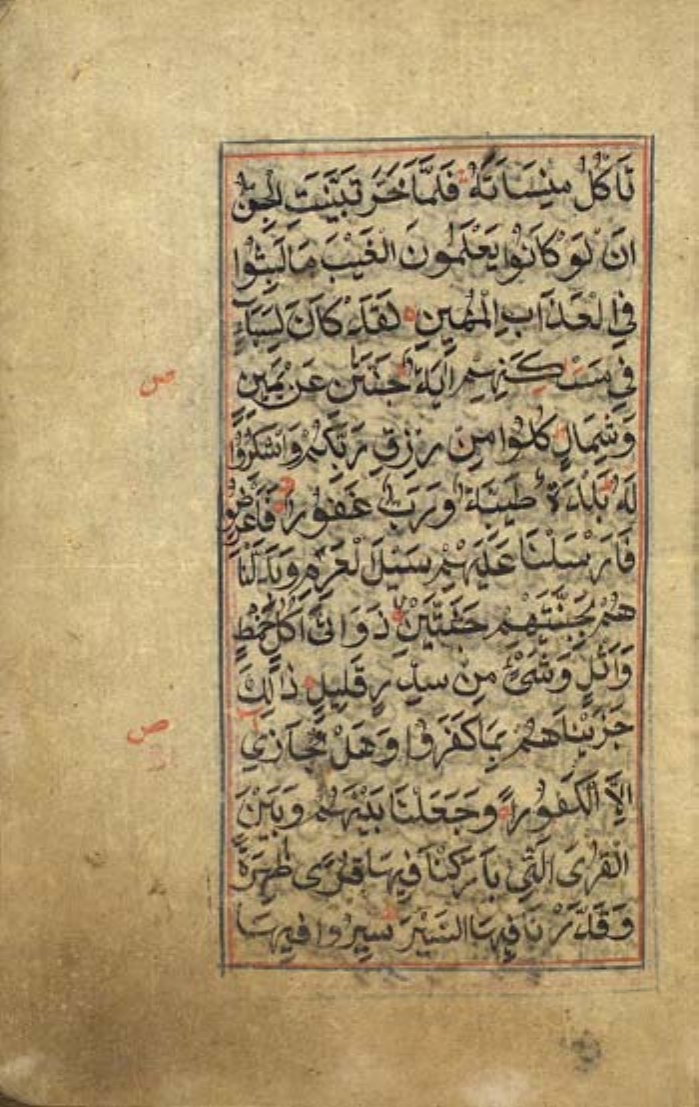 تَاكُلُ مِنْسَاتَهُ فَلَمَّا خَرَّ تَبَيَّنَتِ الْجِنُّ
اَنْ لَوْ كَانُوا يَعْلَمُونَ الْغَيْبَ مَا لَبِثُوا
فِي الْعَذَابِ الْمُهِينِ لَقَدْ كَانَ لِسَبَاءٍ
فِي مَسْكَنِهِمْ اٰيَةٌ جَنَّتٰنِ عَنْ يَمِينٍ
وَشِمَالٍ كُلُوا مِنْ رِزْقِ رَبِّكُمْ وَاشْكُرُوا
لَهُ بَلْدَةٌ طَيِّبَةٌ وَرَبٌّ غَفُورٌ فَاَعْرَضُوا
فَاَرْسَلْنَا عَلَيْهِمْ سَيْلَ الْعَرِمِ وَبَدَّلْنَا
هُمْ بِجَنَّتَيْهِمْ جَنَّتَيْنِ ذَوَاتَيْ اُكُلٍ خَمْطٍ
وَاَثْلٍ وَشَيْءٍ مِنْ سِدْرٍ قَلِيلٍ ذَالِكَ
جَزَيْنَاهُمْ بِمَا كَفَرُوا وَهَلْ نُجَازِي
اِلَّا الْكَفُورَ وَجَعَلْنَا بَيْنَهُمْ وَبَيْنَ
الْقُرَى الَّتِي بَارَكْنَا فِيهَا قُرًى ظَاهِرَةً
وَقَدَّرْنَا فِيهَا السَّيْرَ سِيرُوا فِيهَا
ص
ص